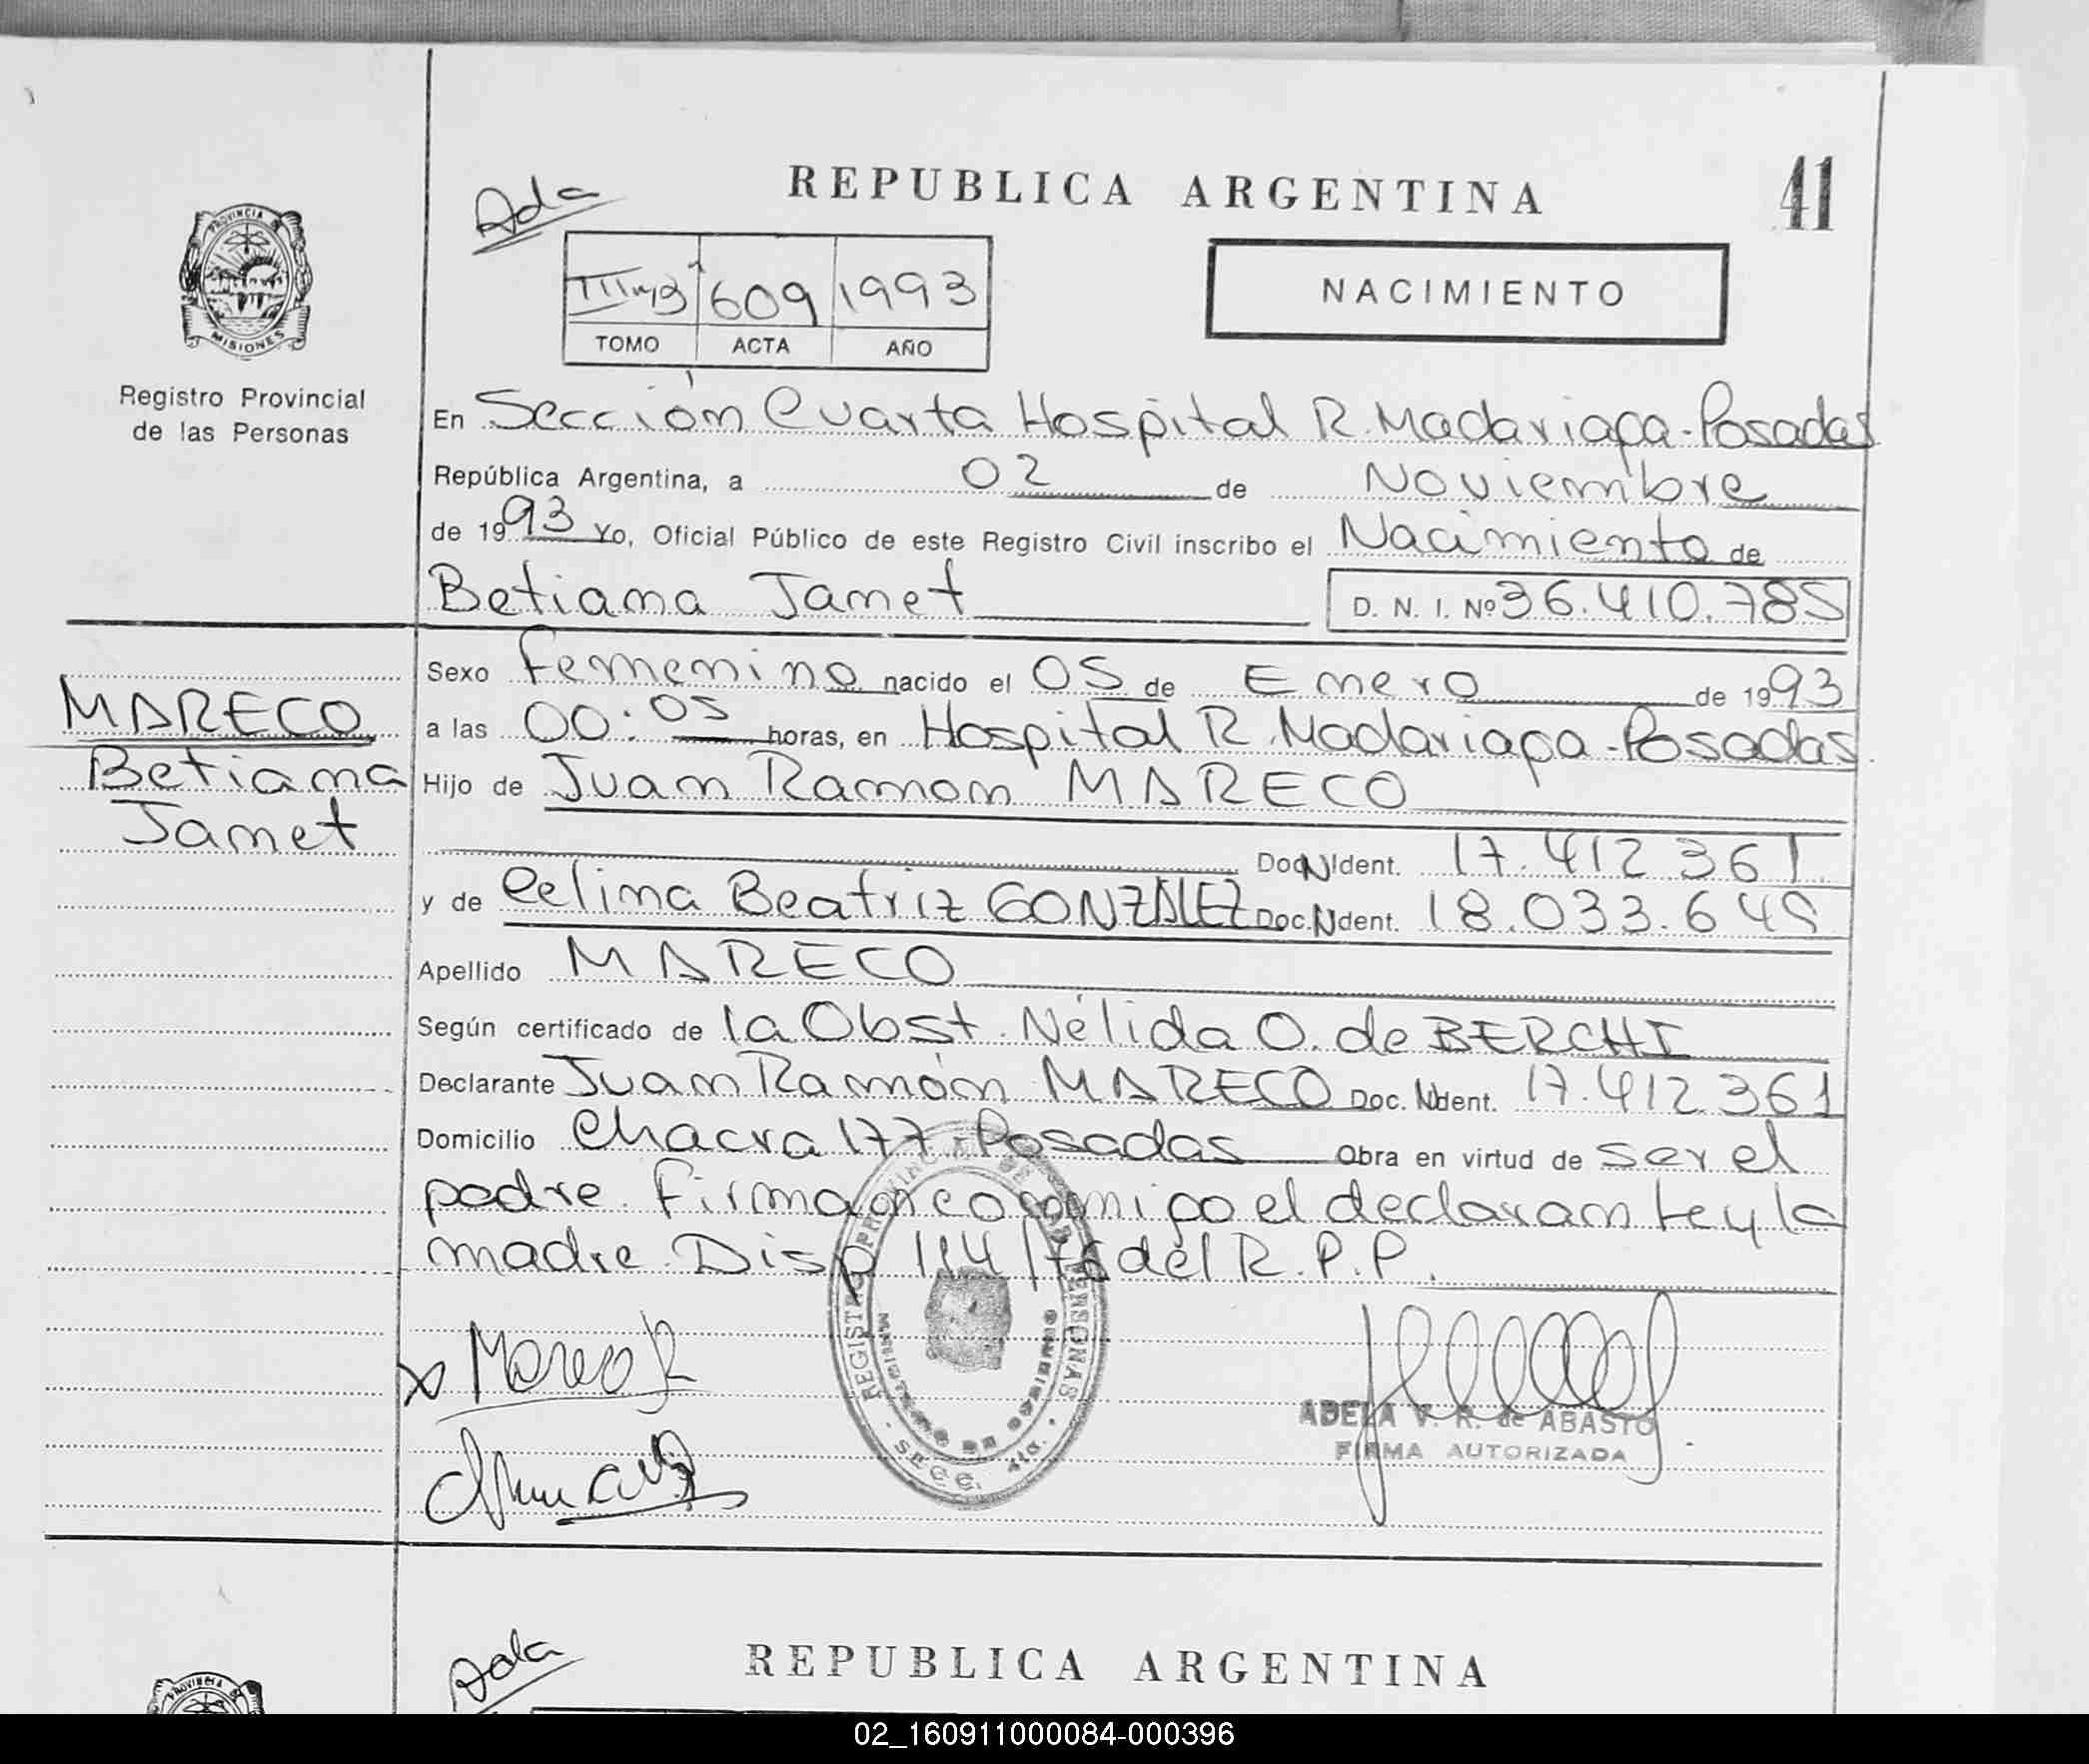 REPUBLICA ARGENTINA
41
Ada
609 1993
TOMO ACTA AÑO
NACIMIENTO
PROVINCIA DE
MISIONES
Registro Provincial
de las Personas
En Sección Cuarta Hospital R. Madariaga - Posadas
República Argentina, a 02 de Noviembre
de 1993 Yo, Oficial Público de este Registro Civil inscribo el Nacimiento de
Betiana Janet D. N. I. Nº 36.410.785
Sexo Femenino nacido el 05 de Enero de 1993
a las 00:05 horas, en Hospital R. Madariaga - Posadas
MARECO
Betiana
Janet
Hijo de Juan Ramon MARECO
Doc. Ident. 17.412.361
y de Celina Beatriz GONZALEZ Doc. Ident. 18.033.645
Apellido MARECO
Según certificado de la Obst. Nélida O. de BERCHI
Declarante Juan Ramón MARECO Doc. Ident. 17.412.361
Domicilio Chacra 177 - Posadas Obra en virtud de ser el
padre. Firman conmigo el declarante y la
madre. Disp 114/76 del R.P.P.
REGISTRO PROVINCIAL DE LAS PERSONAS
SECC. 4ta.
MINISTERIO DE GOBIERNO
x Mareco J R
ADELA V. R. de ABASTO
FIRMA AUTORIZADA
Ada
REPUBLICA ARGENTINA
PROVINCIA
02_160911000084-000396